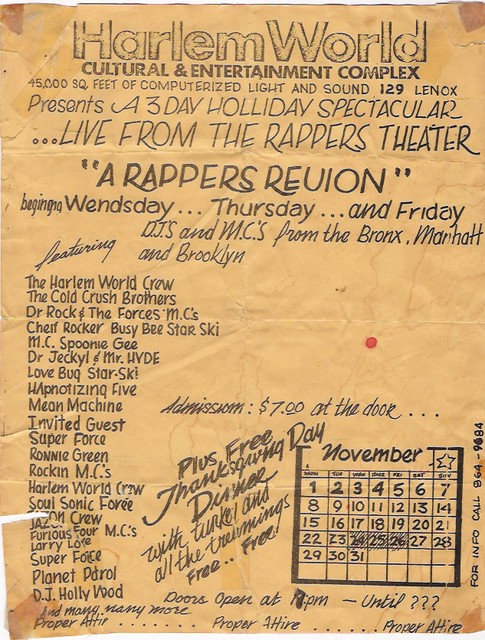 Harlem World
CULTURAL & ENTERTAINMENT COMPLEX
45,000 SQ. FEET OF COMPUTERIZED LIGHT AND SOUND 129 LENOX
Presents A 3 DAY HOLLIDAY SPECTACULAR
...LIVE FROM THE RAPPERS THEATER
"A RAPPERS REUION"
beginging Wendsday... Thursday ...and Friday
D.J.'S and M.C.'s from the Bronx, Manhatt
and Brooklyn
featuring
The Harlem World Crew
The Cold Crush Brothers
Dr Rock & The Forces M.C.'s
Cheif Rocker Busy Bee Star Ski
M.C. Spoonie Gee
Dr Jeckyl & Mr. HYDE
Love Bug Star-Ski
HApnotizing Five
Mean Machine
Invited Guest
Super Force
Ronnie Green
Rockin M.C.'s
Harlem World Crew
Soul Sonic Force
Crew
Furious Four M.C.'s
Larry Love
Super Force
Planet Patrol
D.J. Hollywood
And many, many more
Admission: $7.00 at the door...
Plus Free
Thanksgiving Day
Dinner
with turkey and
all the trimmings
Free.. Free!
November
MON TUE WED THUR FRI SAT SUN
1 2 3 4 5 6 7
8 9 10 11 12 13 14
15 16 17 18 19 20 21
22 23 24 25 26 27 28
29 30 31
FOR INFO CALL 864-9684
Doors Open at pm — Until ???
Proper Attir ........ Proper Attire ........ Proper Attire